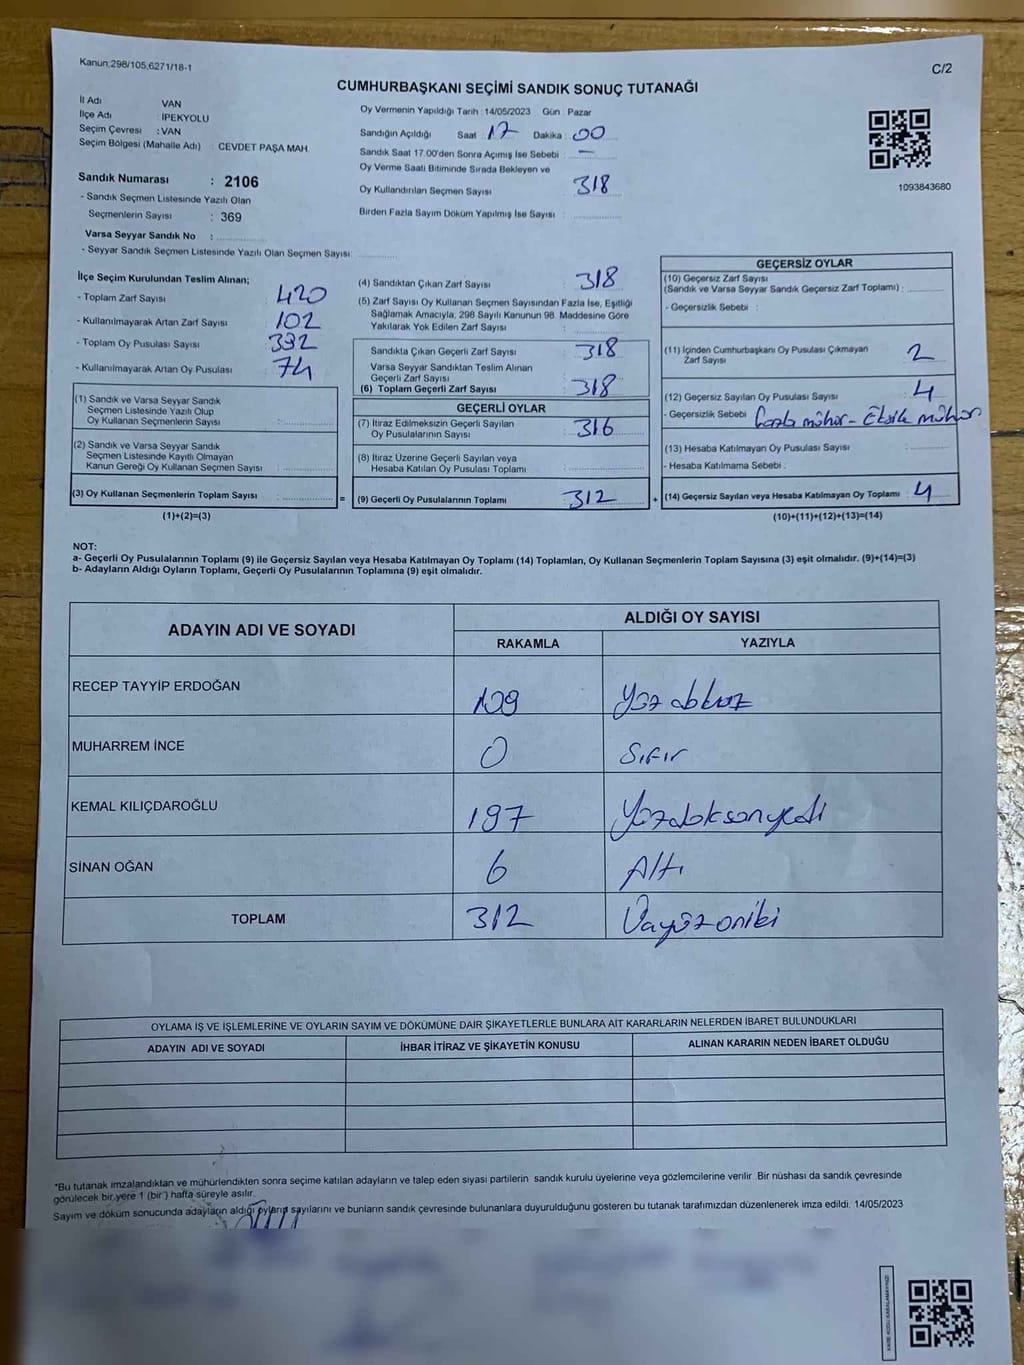 Kanun:298/105,6271/18-1
C/2
CUMHURBAŞKANI SEÇİMİ SANDIK SONUÇ TUTANAĞI
İl Adı VAN
İlçe Adı : İPEKYOLU
Seçim Çevresi : VAN
Seçim Bölgesi (Mahalle Adı) : CEVDET PAŞA MAH.
Sandık Numarası : 2106
- Sandık Seçmen Listesinde Yazılı Olan
Seçmenlerin Sayısı : 369
Varsa Seyyar Sandık No :
- Seyyar Sandık Seçmen Listesinde Yazılı Olan Seçmen Sayısı:
Oy Vermenin Yapıldığı Tarih :14/05/2023 Gün : Pazar
Sandığın Açıldığı Saat : 17 Dakika : 00
Sandık Saat 17.00'den Sonra Açımış İse Sebebi : —
Oy Verme Saati Bitiminde Sırada Bekleyen ve
Oy Kullandırılan Seçmen Sayısı 318
Birden Fazla Sayım Döküm Yapılmış İse Sayısı :
1093843680
İlçe Seçim Kurulundan Teslim Alınan;
- Toplam Zarf Sayısı 420
- Kullanılmayarak Artan Zarf Sayısı 102
- Toplam Oy Pusulası Sayısı 392
- Kullanılmayarak Artan Oy Pusulası 74
(1) Sandık ve Varsa Seyyar Sandık
Seçmen Listesinde Yazılı Olup
Oy Kullanan Seçmenlerin Sayısı :
(2) Sandık ve Varsa Seyyar Sandık
Seçmen Listesinde Kayıtlı Olmayan
Kanun Gereği Oy Kullanan Seçmen Sayısı :
(3) Oy Kullanan Seçmenlerin Toplam Sayısı : =
(1)+(2)=(3)
(4) Sandıktan Çıkan Zarf Sayısı 318
(5) Zarf Sayısı Oy Kullanan Seçmen Sayısından Fazla İse, Eşitliği
Sağlamak Amacıyla, 298 Sayılı Kanunun 98. Maddesine Göre
Yakılarak Yok Edilen Zarf Sayısı :
Sandıkta Çıkan Geçerli Zarf Sayısı : 318
Varsa Seyyar Sandıktan Teslim Alınan
Geçerli Zarf Sayısı :
(6) Toplam Geçerli Zarf Sayısı 318
GEÇERLİ OYLAR
(7) İtiraz Edilmeksizin Geçerli Sayılan
Oy Pusulalarının Sayısı : 316
(8) İtiraz Üzerine Geçerli Sayılan veya
Hesaba Katılan Oy Pusulası Toplamı :
(9) Geçerli Oy Pusulalarının Toplamı : 312 +
GEÇERSİZ OYLAR
(10) Geçersiz Zarf Sayısı
(Sandık ve Varsa Seyyar Sandık Geçersiz Zarf Toplamı) :
- Geçersizlik Sebebi :
(11) İçinden Cumhurbaşkanı Oy Pusulası Çıkmayan
Zarf Sayısı 2
(12) Geçersiz Sayılan Oy Pusulası Sayısı 4
- Geçersizlik Sebebi fazla mühür - Eksik mühür
(13) Hesaba Katılmayan Oy Pusulası Sayısı :
- Hesaba Katılmama Sebebi :
(14) Geçersiz Sayılan veya Hesaba Katılmayan Oy Toplamı : 4
(10)+(11)+(12)+(13)=(14)
NOT:
a- Geçerli Oy Pusulalarının Toplamı (9) ile Geçersiz Sayılan veya Hesaba Katılmayan Oy Toplamı (14) Toplamları, Oy Kullanan Seçmenlerin Toplam Sayısına (3) eşit olmalıdır. (9)+(14)=(3)
b- Adayların Aldığı Oyların Toplamı, Geçerli Oy Pusulalarının Toplamına (9) eşit olmalıdır.
ADAYIN ADI VE SOYADI
ALDIĞI OY SAYISI
RAKAMLA YAZIYLA
RECEP TAYYİP ERDOĞAN 109 Yüzdokuz
MUHARREM İNCE 0 Sıfır
KEMAL KILIÇDAROĞLU 197 Yüzdoksanyedi
SİNAN OĞAN 6 Altı
TOPLAM 312 Üçyüzoniki
OYLAMA İŞ VE İŞLEMLERİNE VE OYLARIN SAYIM VE DÖKÜMÜNE DAİR ŞİKAYETLERLE BUNLARA AİT KARARLARIN NELERDEN İBARET BULUNDUKLARI
ADAYIN ADI VE SOYADI İHBAR İTİRAZ VE ŞİKAYETİN KONUSU ALINAN KARARIN NEDEN İBARET OLDUĞU
*Bu tutanak imzalandıktan ve mühürlendikten sonra seçime katılan adayların ve talep eden siyasi partilerin sandık kurulu üyelerine veya gözlemcilerine verilir. Bir nüshası da sandık çevresinde
görülecek bir yere 1 (bir) hafta süreyle asılır.
Sayım ve döküm sonucunda adayların aldığı oyların sayılarını ve bunların sandık çevresinde bulunanlara duyurulduğunu gösteren bu tutanak tarafımızdan düzenlenerek imza edildi. 14/05/2023